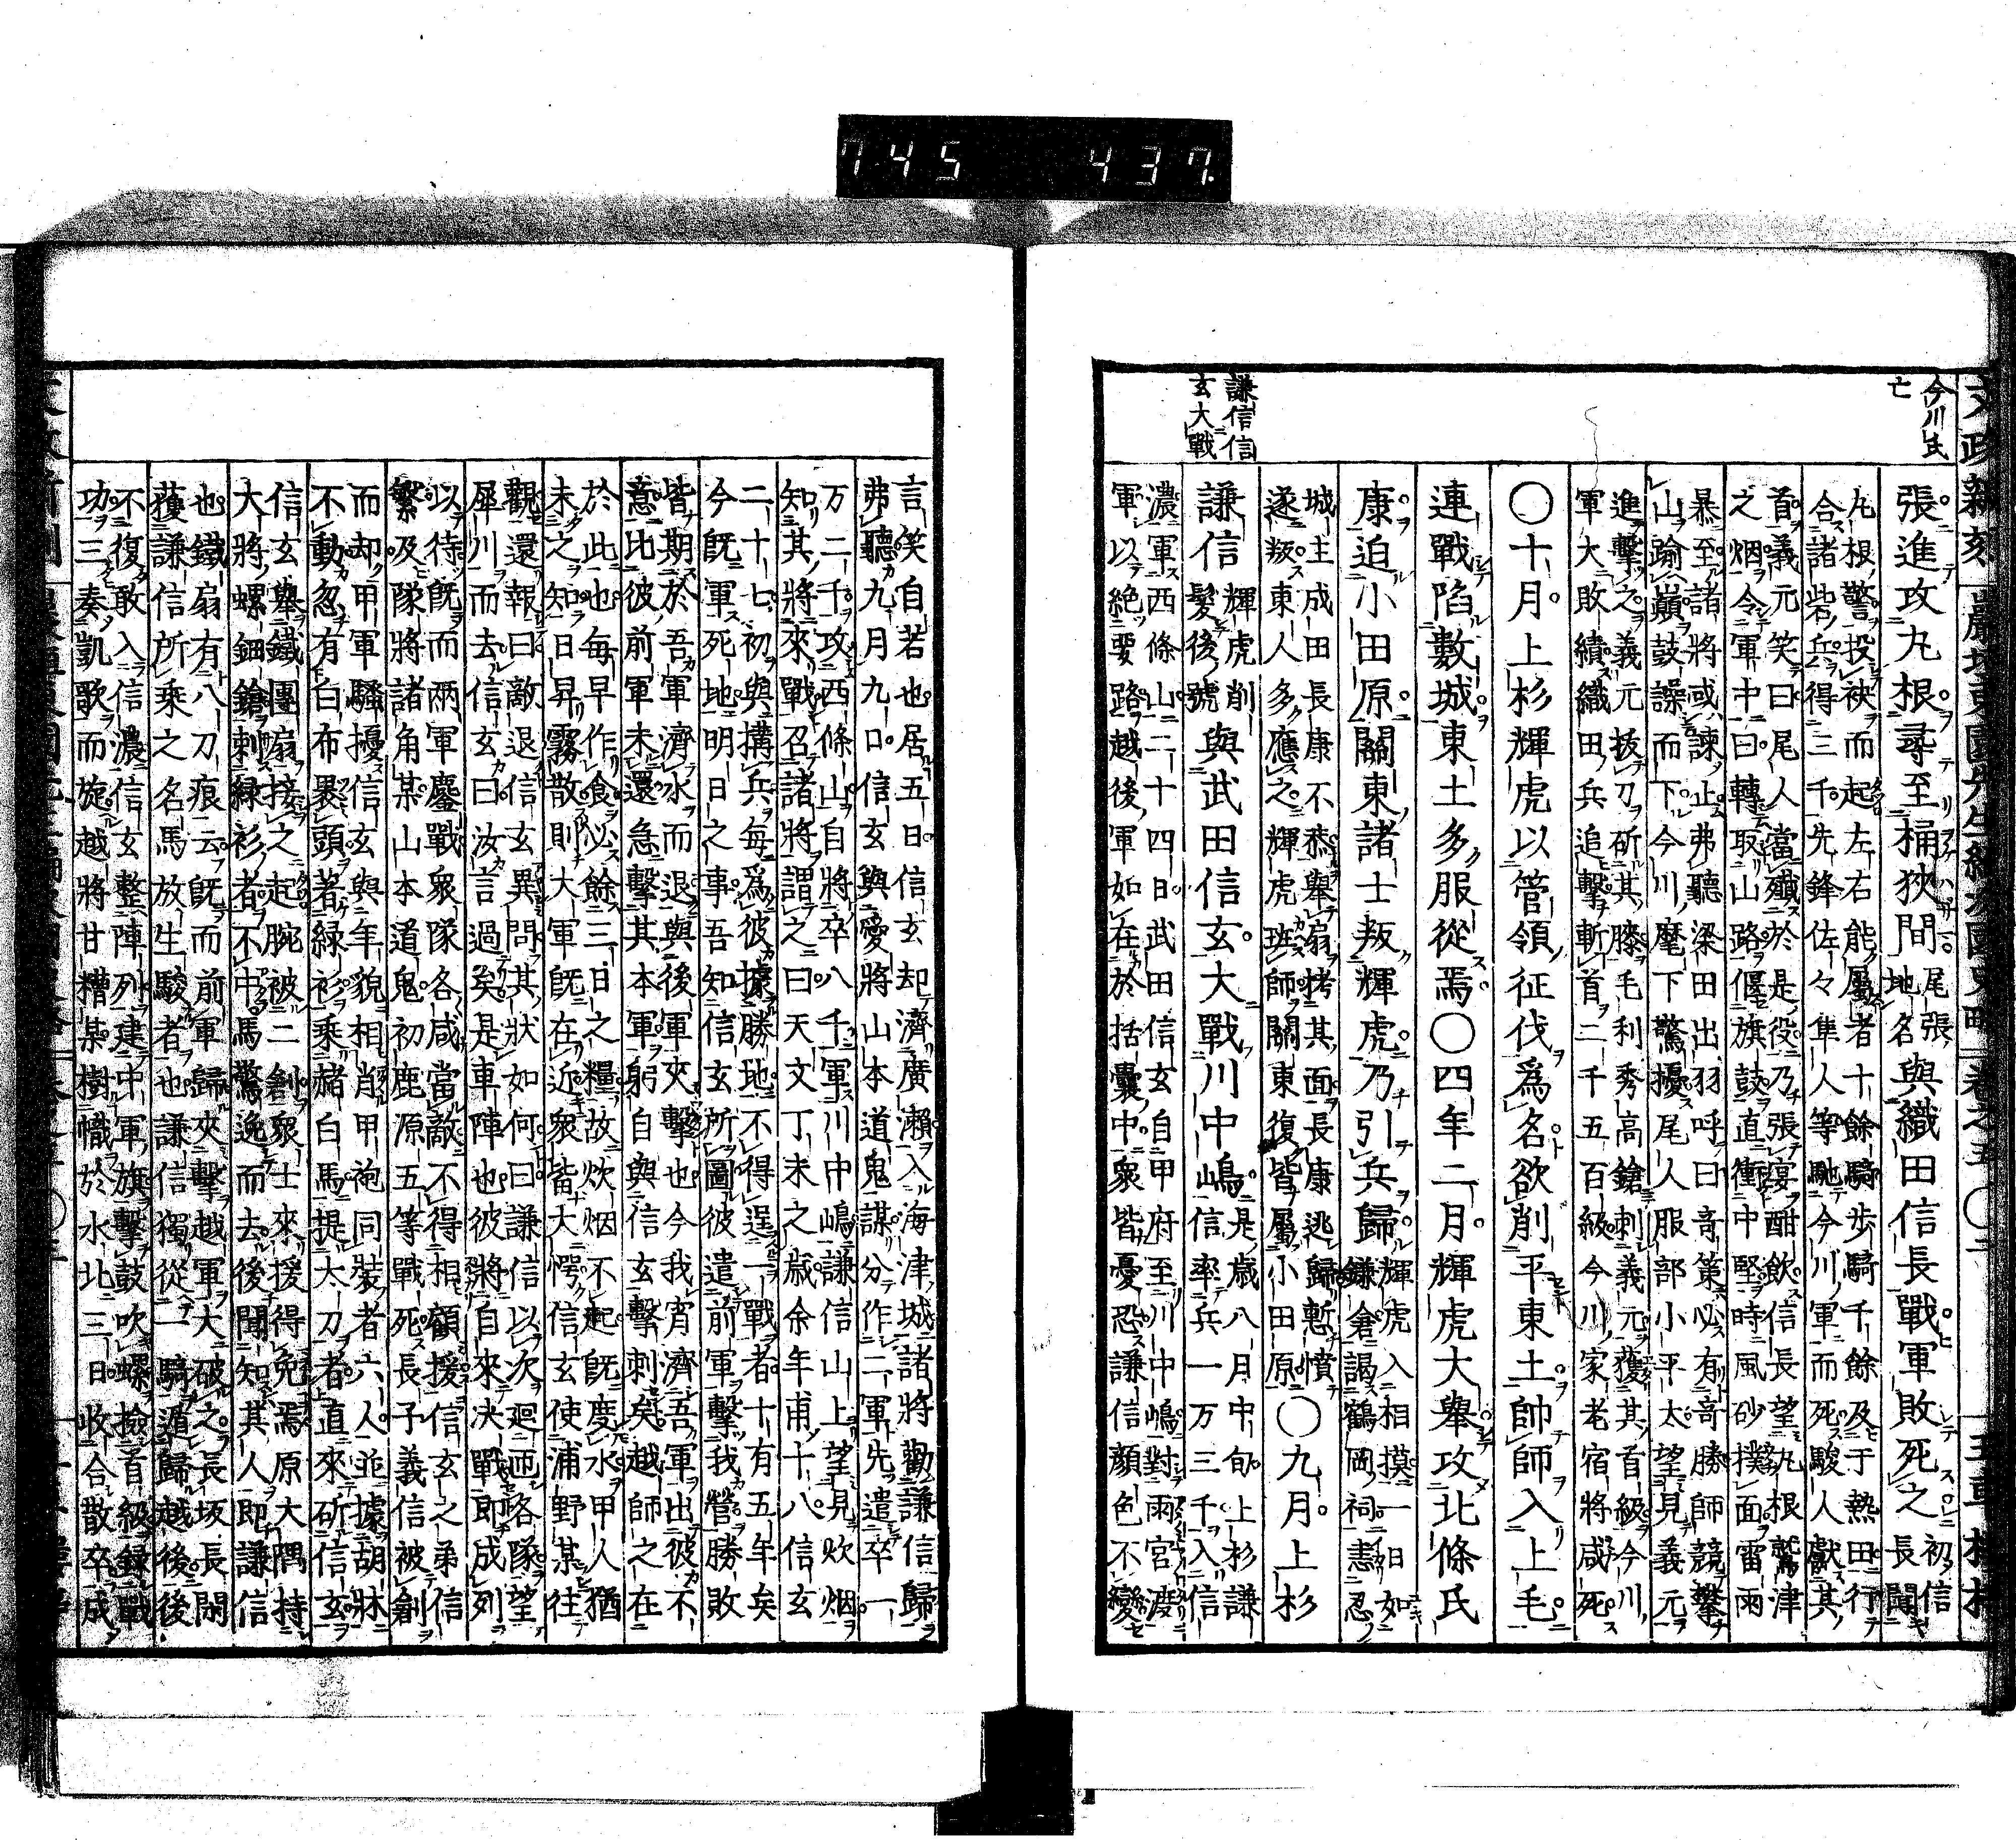 745 437.
今川氏
亡
謙信信
玄大戰
張進攻丸根尋至桶狹間
尾張
地名
與織田信長戰軍敗死之
初信
長聞
丸根警投袂而起左右能屬者十餘騎步騎千餘及于熱田行
合諸砦兵得三千先鋒佐々隼人等馳今川軍而死駿人獻其
首義元笑曰尾人當殲於是役乃張宴酣飲信長望丸根鷲津
之烟令軍中曰轉取山路偃旗鼓直衝中堅時風砂撲面雷雨
暴至諸將或諫止弗聽梁田出羽呼曰奇策必有奇勝師競攀
山踰巔鼓譟而下今川麾下驚擾尾人服部小平太望見義元
進擊之義元拔刀斫其膝毛利秀高鎗刺義元獲其首級今川
軍大敗績織田兵追擊斬首二千五百級今川家老宿將咸死
〇十月上杉輝虎以管領征伐爲名欲削平東土帥師入上毛
連戰陷數城東土多服從焉〇四年二月輝虎大舉攻北條氏
康迫小田原關東諸士叛輝虎乃引兵歸
輝虎入相摸一日如
鎌倉謁鶴岡祠恚忍
城主成田長康不恭舉扇拷其面長康逃歸慙憤
遂叛東人多應之輝虎班師關東復皆屬小田原
〇九月上杉
謙信
輝虎削
髮後號
與武田信玄大戰川中嶋
是歲八月中旬上杉謙
信率兵一万三千入信
濃軍西條山二十四日武田信玄自甲府至川中嶋對雨宮渡
軍以絕要路越後軍如在於括囊中衆皆憂恐謙信顏色不變
言笑自若也居五日信玄起濟廣瀨入海津城諸將勸謙信歸
弗聽九月九日信玄與愛將山本道鬼謀分作二軍先遣卒一
万二千攻西條山自將卒八千軍川中嶋謙信山上望見炊烟
知其將來戰召諸將謂之曰天文丁未之歲余年甫十八信玄
二十七初與搆兵每爲彼據勝地不得逞一戰者十有五年矣
今既軍死地明日之事吾知信玄所圖彼遣前軍擊我營勝敗
皆期於吾軍濟水而退與後軍夾擊也今我宵濟吾軍出彼不
意比彼前軍未還急擊其本軍躬自與信玄擊刺矣越師之在
於此也每早作食必餘三日之糧故炊烟不起既度水甲人猶
未之知日昇霧散則大軍既在近衆皆大愕信玄使浦野某往
觀還報曰敵退信玄異問其狀如何曰謙信以次廻匝各隊望
犀川而去信玄曰汝言過矣是車陣也彼將自來決戰即成列
以待既而兩軍鏖戰衆隊各咸當敵不得相顧援信玄之弟信
繁及隊將諸角某山本道鬼初鹿源五等戰死長子義信被創
而却甲軍騷擾信玄與年貌相肖甲袍同裝者六人並據胡牀
不動忽有白布裹頭著緑衫乘赭白馬提太刀者直來斫信玄
信玄舉鐵團扇接之起腕被二創衆士來援得免焉原大隅持
大將螺鈿鎗刺緑衫者不中馬驚逸而去後聞知其人即謙信
也鐵扇有八刀痕云既而前軍歸夾擊越軍大破之長坂長閑
獲謙信所乘之名馬放生駿者也謙信獨從一騎遁歸越後後
不復敢入信濃信玄整陣列建中軍旗擊鼓吹螺撿首級錄戰
功三奏凱歌而旋越將甘糟某樹幟於水北三日收合散卒成